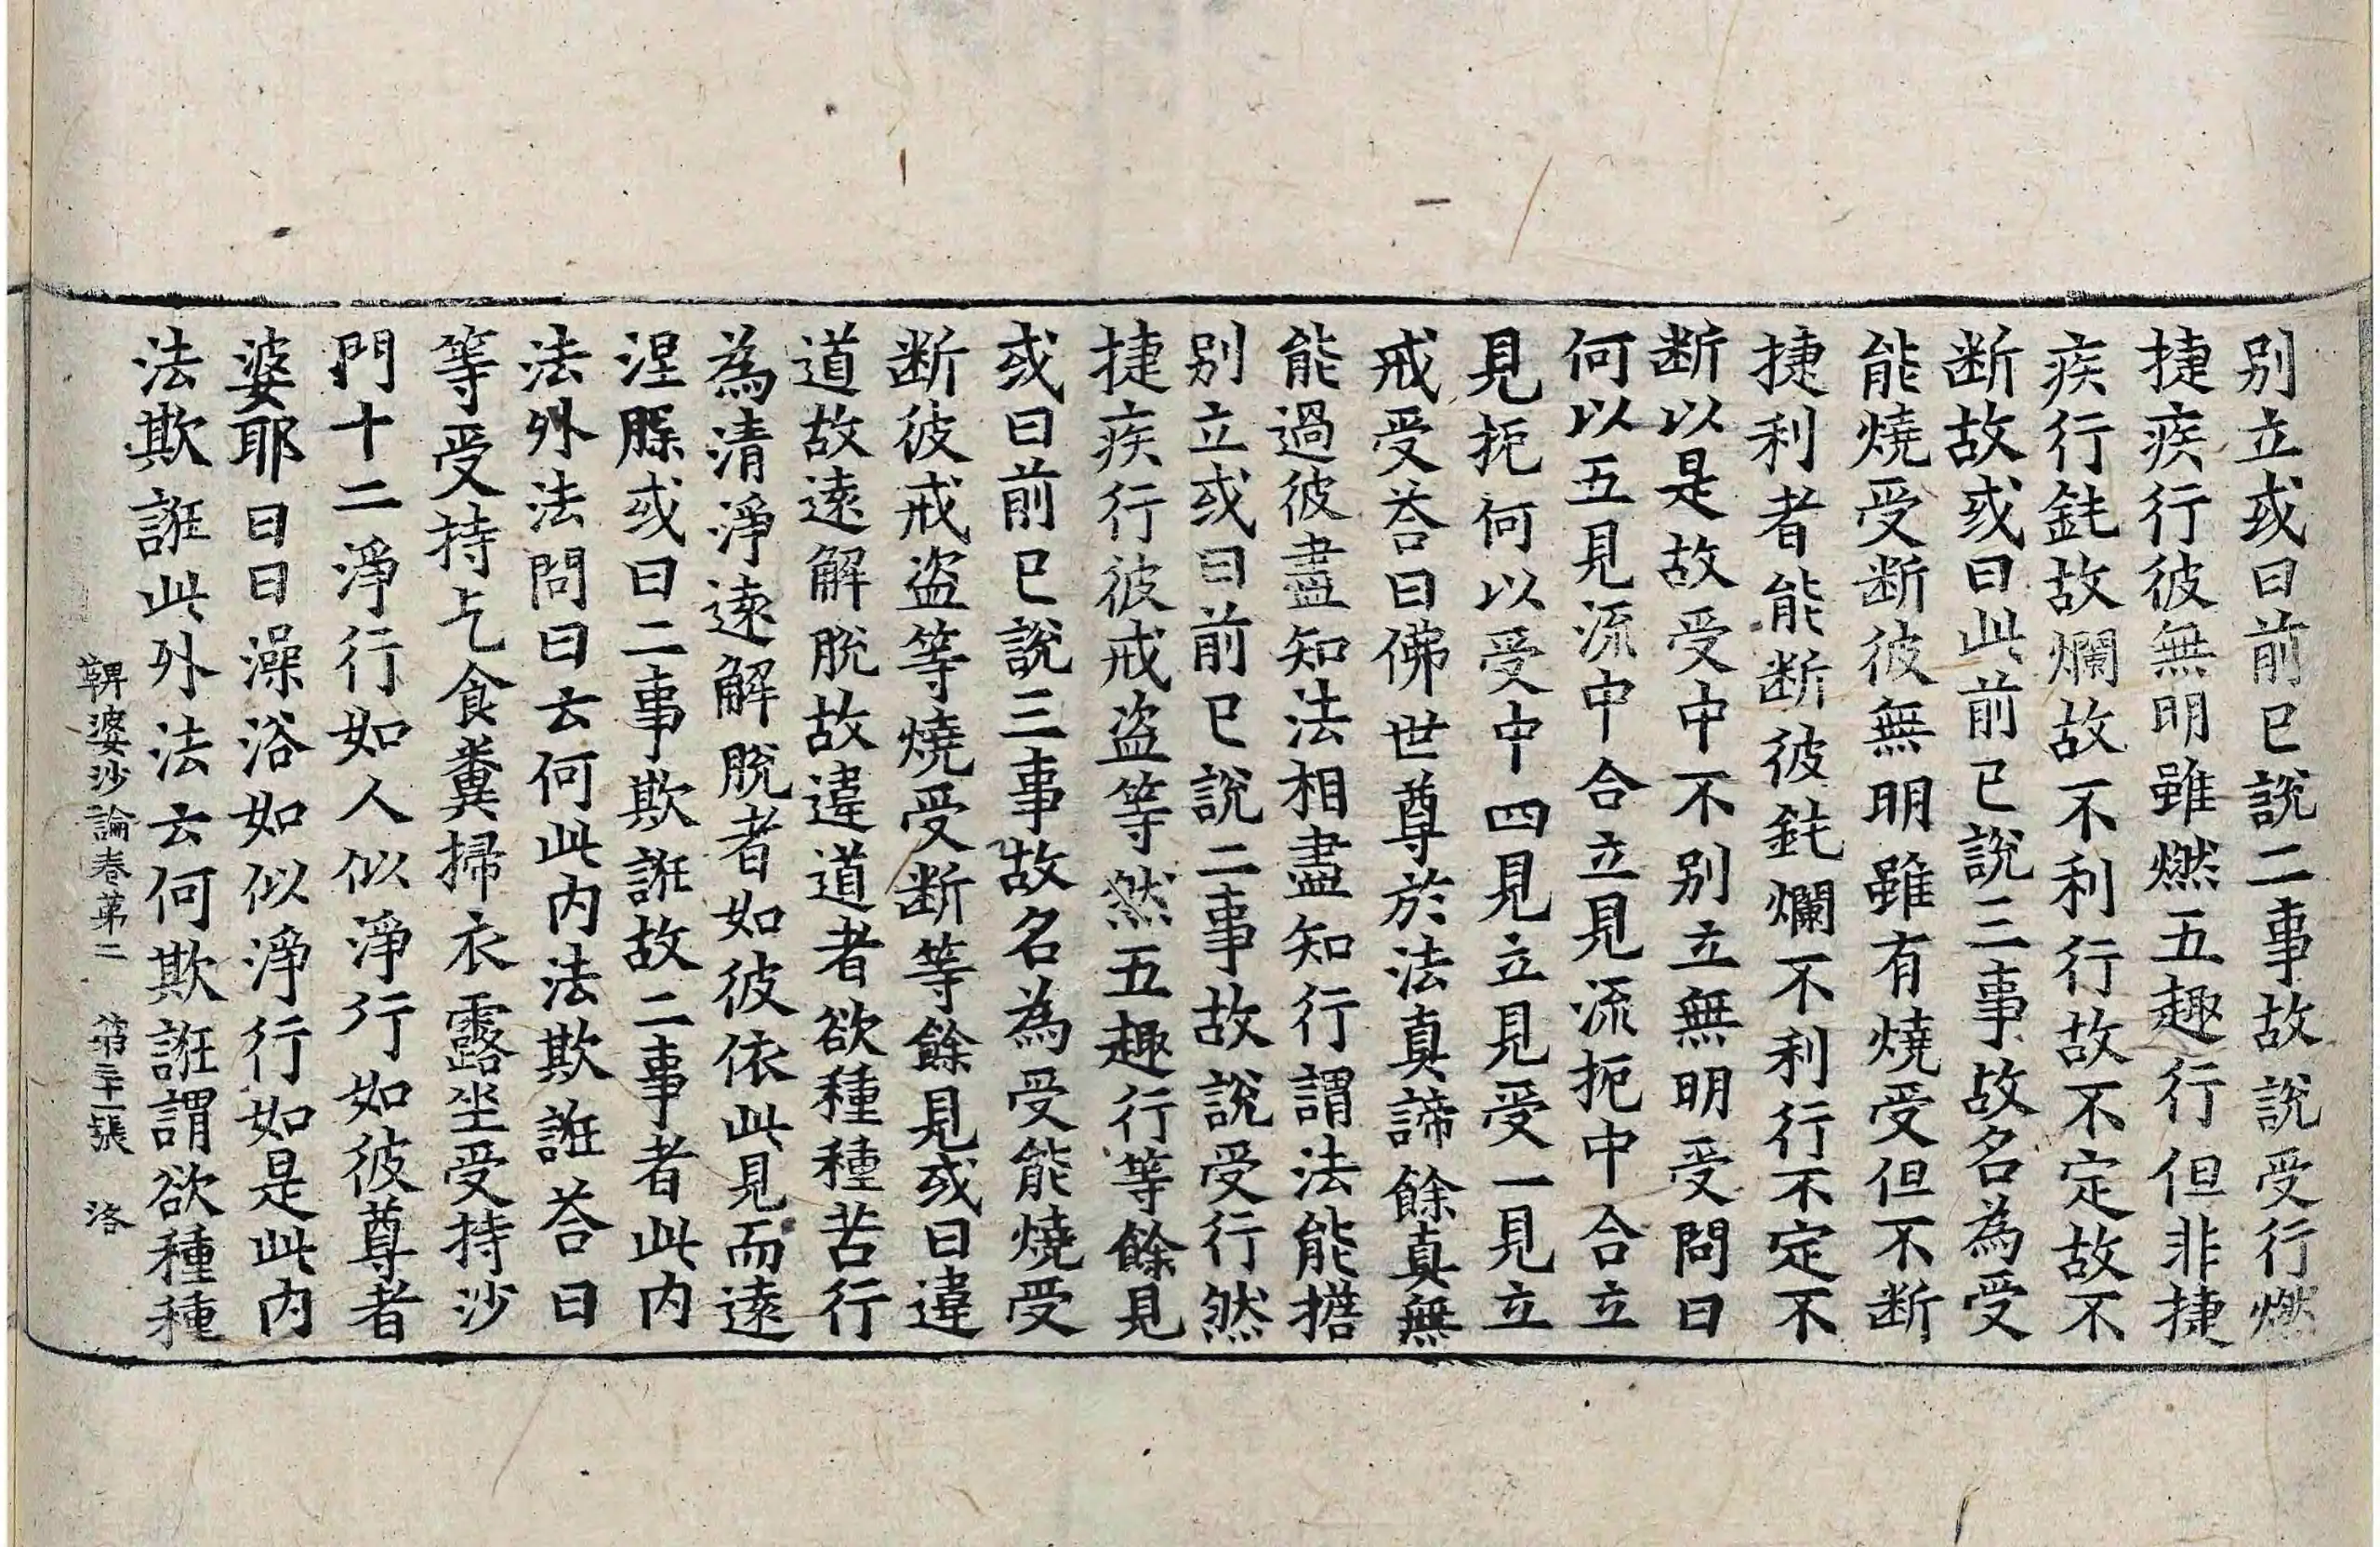 别立或曰前已說二事故說受行燃
捷疾行彼無明雖燃五趣行但非捷
疾行鈍故爛故不利行故不定故不
断故或曰此前已說三事故名為受
能燒受断彼無明雖有燒受但不断
捷利者能断彼鈍爛不利行不定不
断以是故受中不别立無明受問曰
何以五見流中合立見流扼中合立
見扼何以受中四見立見受一見立
戒受荅曰佛世尊於法真諦餘真無
能過彼盡知法相盡知行謂法能擔
别立或曰前已說二事故說受行然
捷疾行彼戒盜等然五趣行等餘見
或曰前已說三事故名為受能燒受
断彼戒盜等燒受断等餘見或曰違
道故逺解脫故違道者欲種種苦行
為清淨逺解脫者如彼依此見而逺
涅槃或曰二事欺誑故二事者此内
法外法問曰云何此内法欺誑荅曰
等受持乞食糞掃衣露坐受持沙
門十二淨行如人似淨行如彼尊者
婆耶曰曰澡浴如似淨行如是此内
法欺誑此外法云何欺誑謂欲種種
鞞婆沙論卷第二 第三十一張 洛